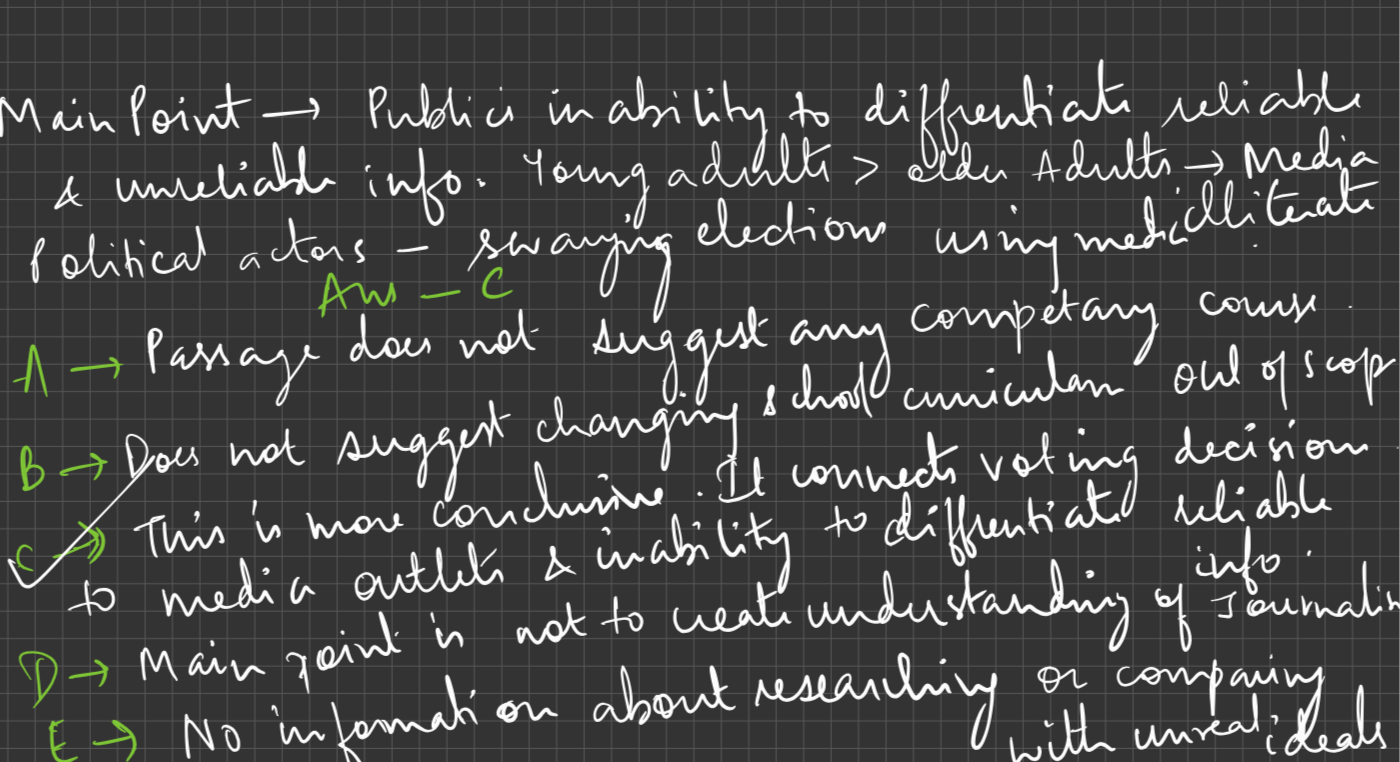 Main Point → Public inability to diffrentiate reliable
& unreliable info. Young adults > older Adults → Media illiterate
Political actors - swaying elections using media
Ans - C
A → Passage does not suggest any competary course.
B → Does not suggest changing school curriculam out of scop
C → This is more conclusive. It connects voting decision
to media outlets & inability to diffrentiate reliable info.
D → Main point is not to create understanding of Journalin
E → No information about researching or comparing
with unreal ideals